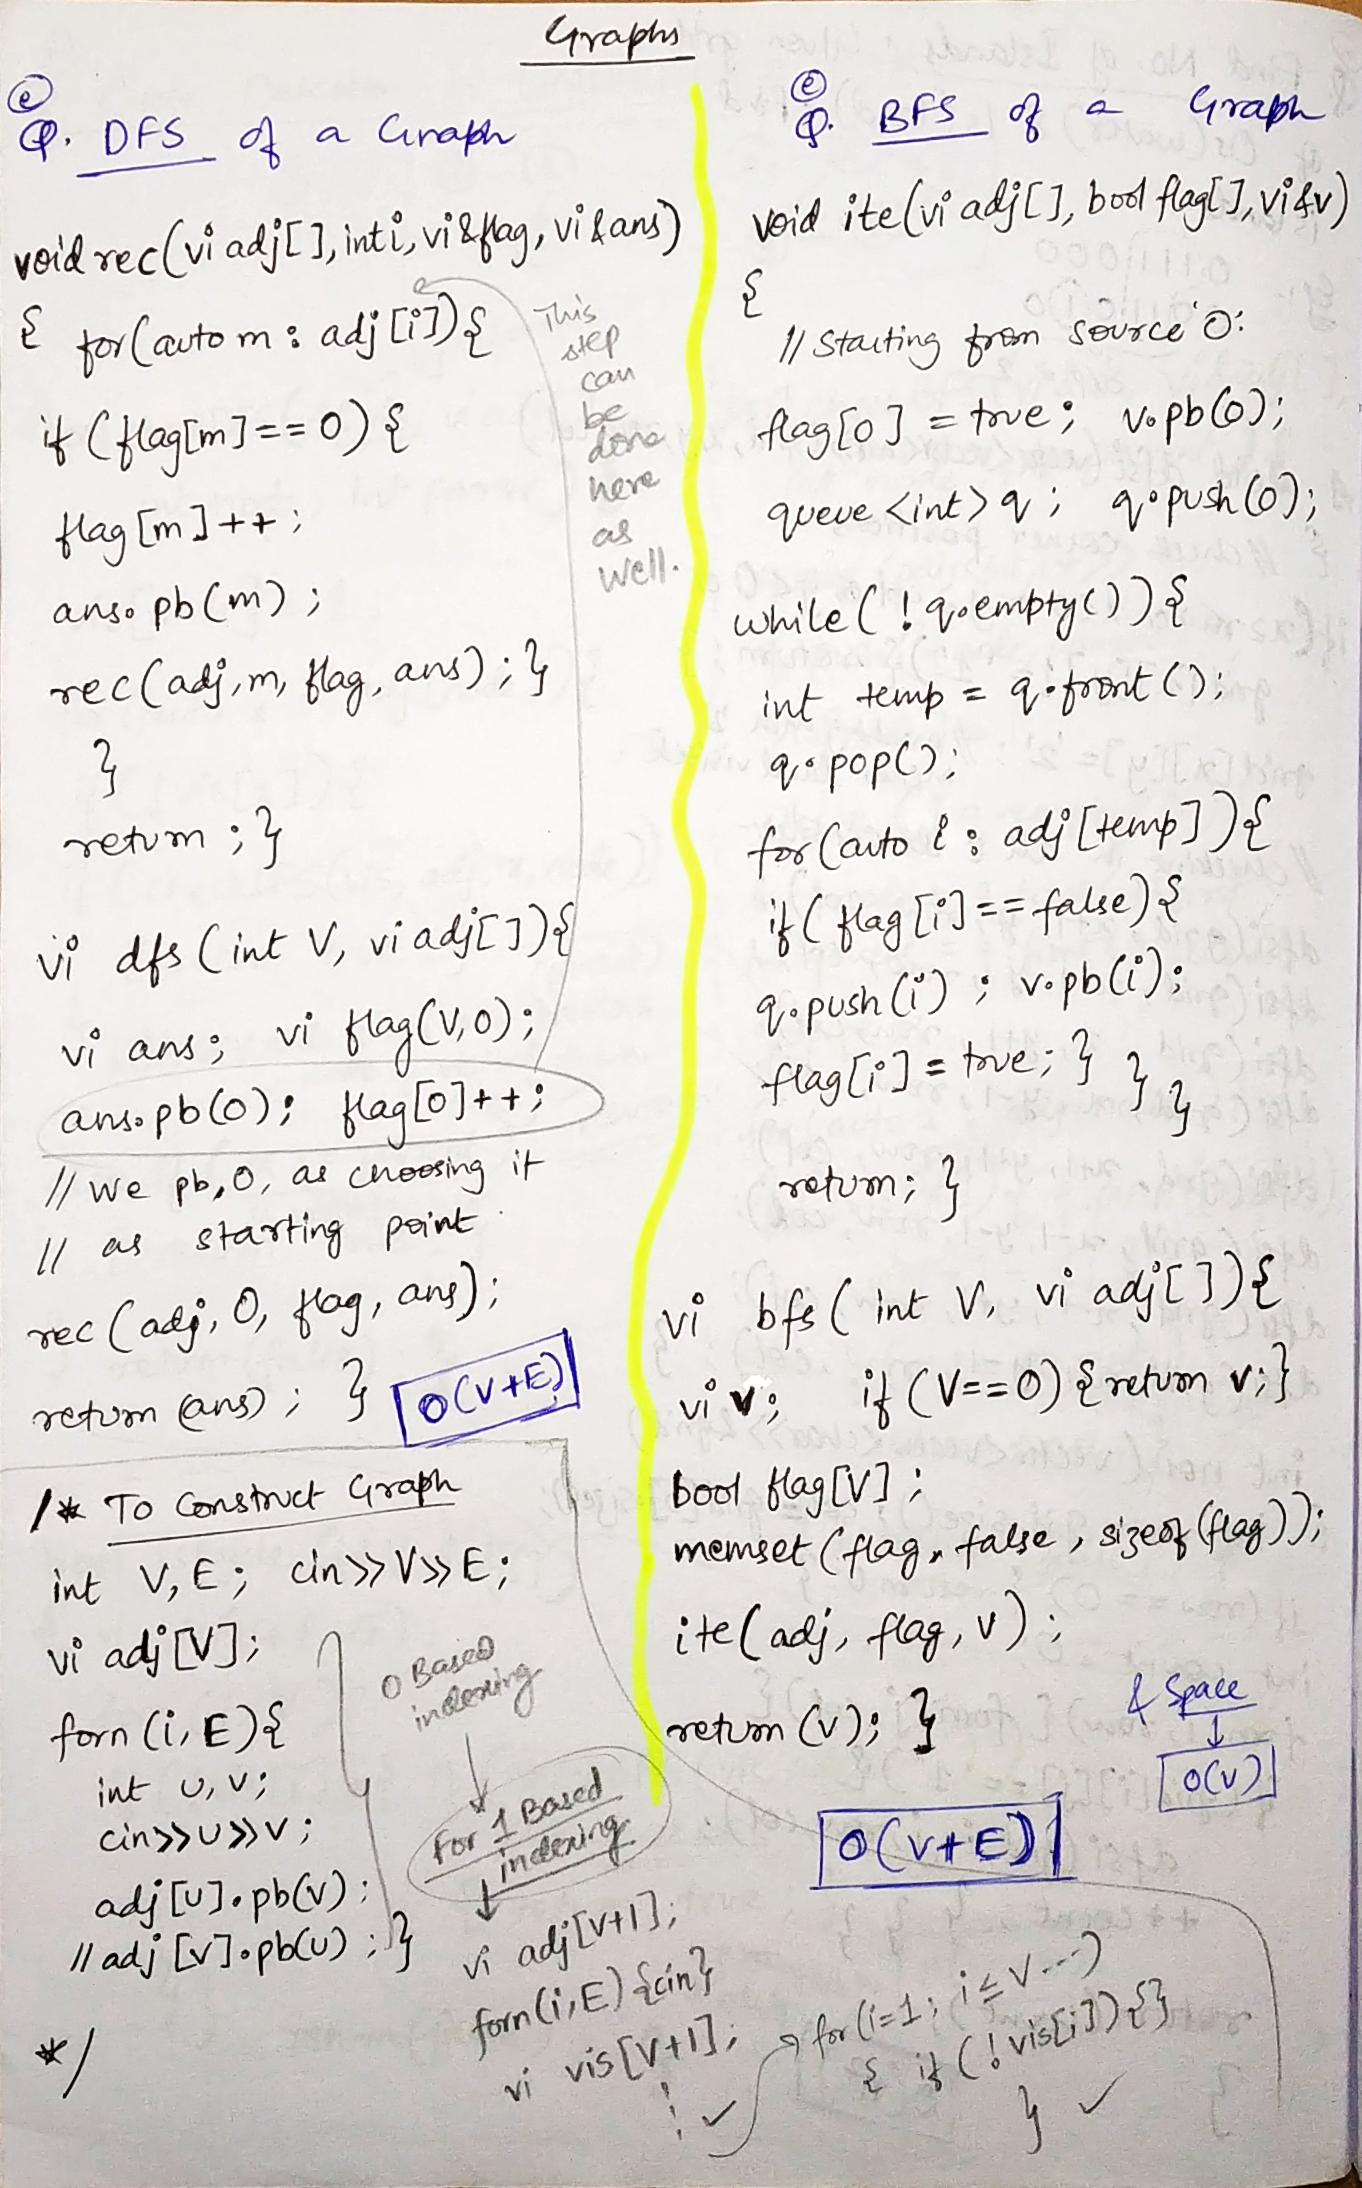 Graphs
(e)
Q. DFS of a Graph
void rec(vi adj[], int i, vi &flag, vi &ans)
{ for(auto m : adj[i]){
if (flag[m]==0) {
flag[m]++;
ans.pb(m);
rec(adj,m, flag, ans); }
}
return ; }
This
step
can
be
done
here
as
well.
vi dfs (int V, vi adj[]){
vi ans; vi flag(V,0);
ans.pb(0); flag[0]++;
// We pb, 0, as choosing it
// as starting point
rec(adj, 0, flag, ans);
return (ans) ; }
O(V+E)
/* To Construct Graph
int V, E; cin>>V>>E;
vi adj[V];
forn (i, E){
int u, v;
cin>>u>>v;
adj[u].pb(v);
// adj[v].pb(u) ; }
*/
0 Based
indexing
For 1 Based
indexing
vi adj[V+1];
forn(i,E) {cin}
vi vis[V+1];
(e)
Q. BFS of a Graph
void ite(vi adj[], bool flag[], vi &v)
{
// Starting from source '0':
flag[0] = true; v.pb(0);
queue <int> q ; q.push(0);
while( ! q.empty()) {
int temp = q.front();
q.pop();
for(auto i : adj[temp]){
if( flag[i]==false) {
q.push(i) ; v.pb(i);
flag[i] = true; } } }
return; }
vi bfs( int V, vi adj[]){
vi v; if (V==0) {return v;}
bool flag[V] ;
memset(flag, false, sizeof(flag));
ite(adj, flag, v) ;
return (v); }
& Space
O(V)
O(V+E)
for(i=1; i≤V---)
{ if (!vis[i]) {}
}